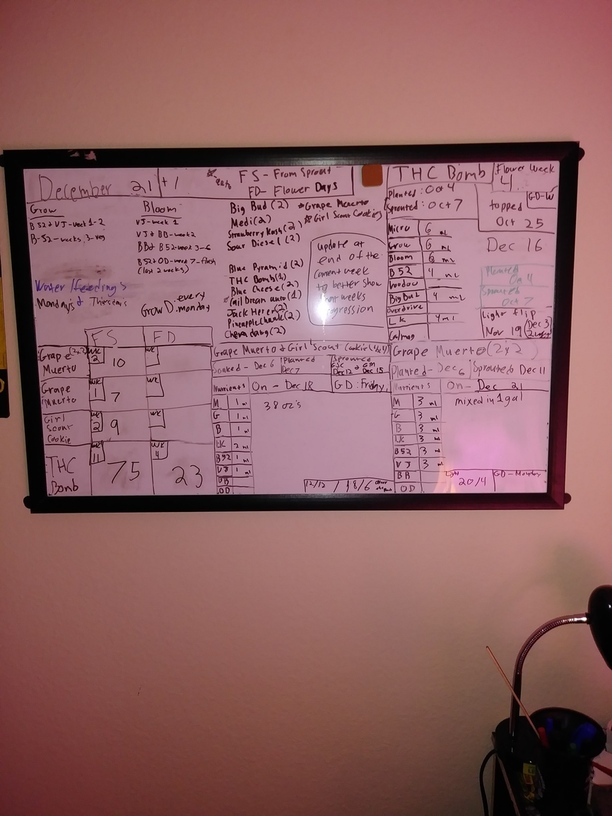 December 21
FS - From Sprout
FD - Flower Days
Grow
B-52 + VJ - week 1-2
B-52 - weeks 3-
Bloom
VJ - week 1
VJ + BB - week 2
BB + B52 - week 3-6
B52 + OD - week 7 - flush
(last 2 weeks)
Water/feeding's
Monday's & Thursdays
Grow D. every monday
Big Bud (2)
Grape Muerto
Medi (2)
Girl Scout Cookies
Strawberry Kush (2)
Sour Diesel (2)
Blue Pyramid (2)
THC Bomb (2)
Blue Cheese (2)
Cali Dream auto (1)
Jack Herer (2)
Pineapple Chunk (2)
Cherry (2)
update at
end of the
current week
to better show
weeks
progression
THC Bomb
Flower week
4
Planted: Oct 4
Sprouted: Oct 7
topped
Oct 25
GD-W
Micro 6 ml
Grow 6 ml
Bloom 6 ml
B52 4 ml
Voodoo
Big bud 4 ml
Overdrive
LK 4 ml
Calmag
Dec 16
Planted
Oct 4
Sprouted
Oct 7
Light flip
Nov 19
Dec 3
FS FD
Grape Muerto (2x2) WK 2 10 WK
Grape Muerto WK 1 7 WK
Girl Scout Cookie WK 2 9 WK
THC Bomb WK 11 75 WK 4 23
Grape Muerto & Girl Scout Cookie
Soaked - Dec 6
Planted Dec 7
Sprouted
Dec 12
Dec 13
Nutrients On - Dec 18 GD: Friday
M 1 ml
38 oz's
G 1 ml
B 1 ml
LK 2 ml
B52 1 ml
VJ 1 ml
BB
OD
12/12
18/6
Grape Muerto (2x2)
Planted - Dec 6
Sprouted Dec 11
Nutrients On - Dec 21
M 3 ml
mixed in 1 gal
G 3 ml
B 3 ml
LK 3 ml
B52 3 ml
VJ 3 ml
BB
OD
20/4
GD - Monday